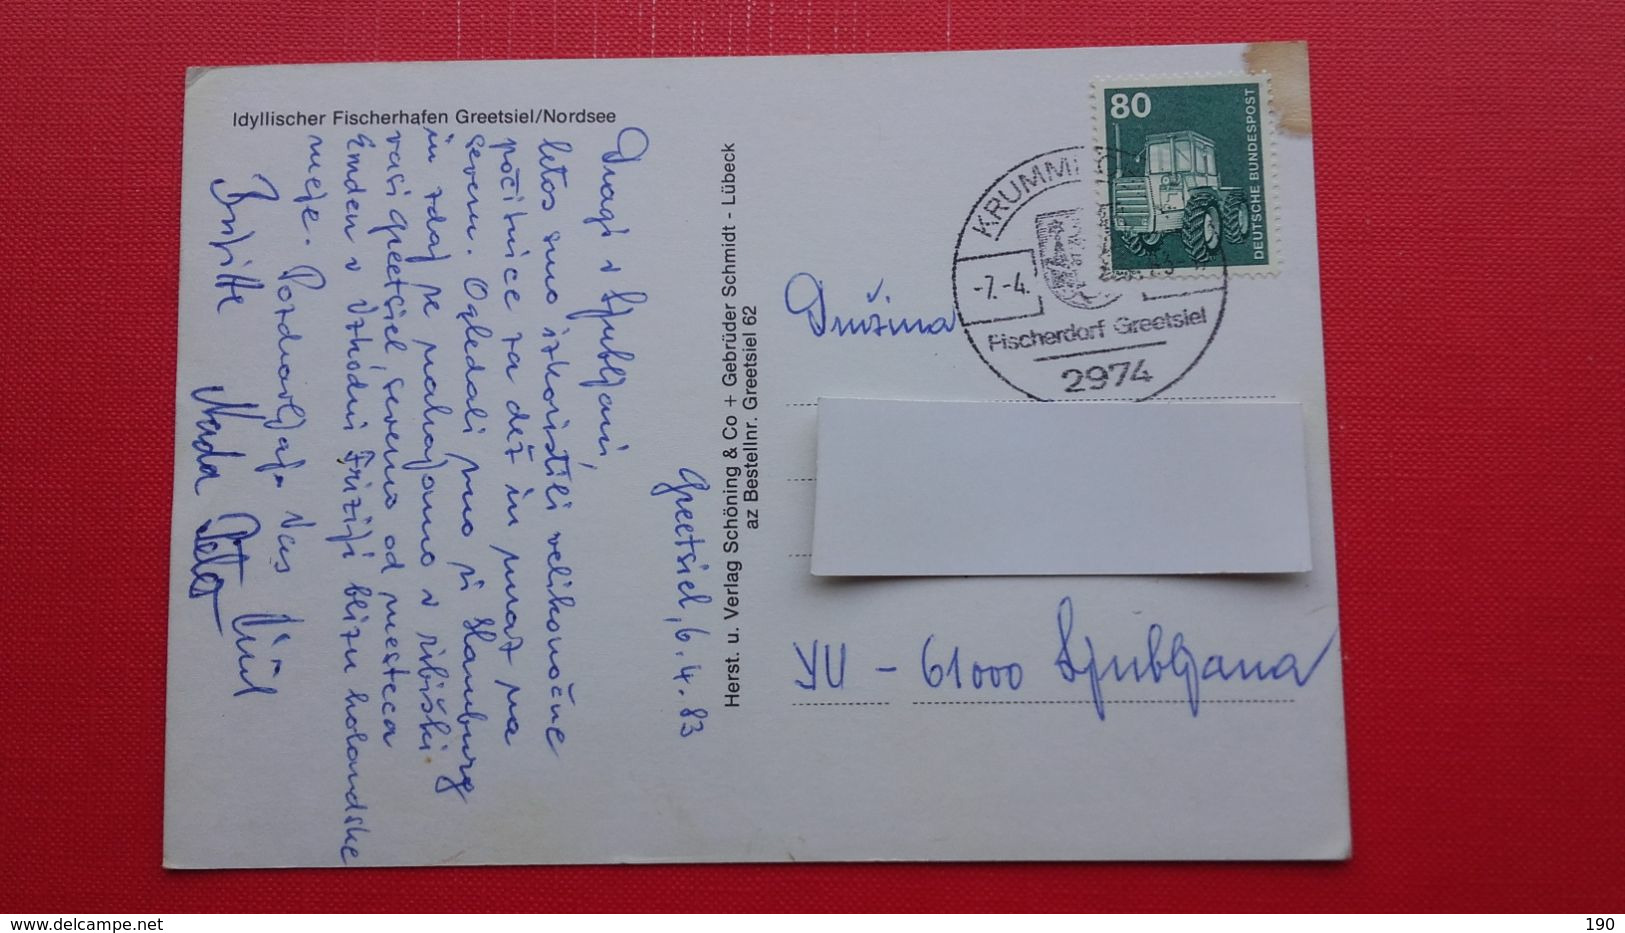 Idyllischer Fischerhafen Greetsiel/Nordsee
Greetsiel, 6.4.83
Dragi v Ljubljani,
letos smo izkoristili velikonočne
počitnice za dež in mraz na
severu. Ogledali smo si Hamburg
in zdaj se nahajamo v ribiški
vasi Greetsiel, severno od mesteca
Emden v Vzhodni Friziji blizu holandske
meje. Pozdravljajo Vas
Brigitte Nada Peter
Herst. u. Verlag Schöning & Co + Gebrüder Schmidt - Lübeck
az Bestellnr. Greetsiel 62
80
DEUTSCHE BUNDESPOST
KRUMMH
-7.-4.
Fischerdorf Greetsiel
2974
Družina
YU - 61000 Ljubljana
190